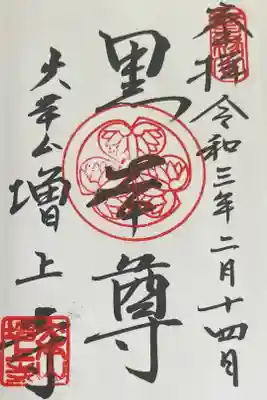 奉拝 令和三年二月十四日
黒本尊
大本山 増上寺